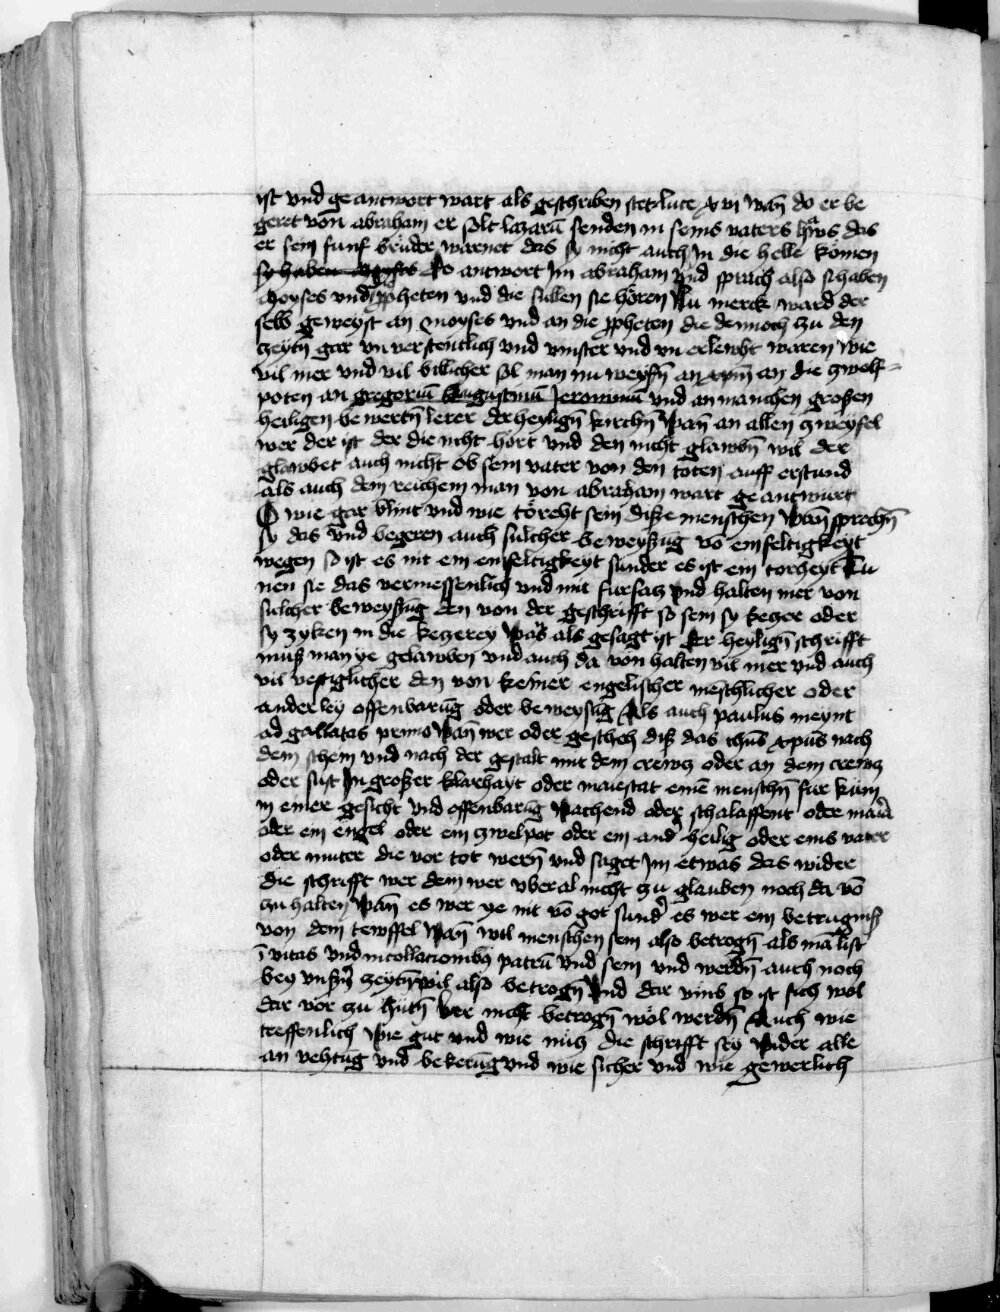 ist vnd geantwort wart als geschriben stet luce xvi wañ do er be
geret von abraham er solt lazarū senden in seins vaters haws das
er sein funf brüder warnet das sy nicht auch jn die helle komen
sy haben moyses Do antwort jm abraham vnd sprach also si haben
moyses vnd ppheten vnd die sullen sie hören Nu merck ward der
selb geweyst an moyses vnd an die ppheten die dennoch zu den
zeytñ gar vnverstentlich vnd vinster vnd vnerlewht waren wie
vil mer vnd vil billicher sol man nu weysñ an xpm̄ an die zwelf-
poten an gregoriū augustinū Jeronimū vnd an manchen großen
heiligen bewertñ lerer der heyligñ kirchñ wañ an allen zweyfel
wer der ist der die nicht hort vnd den nicht glawbñ wil der
glawbet auch nicht ob sein vater von den toten auff erstund
als auch dem reichem man von abraham wart geantwurt
O wie gar blint vnd wie töreht sein diße menschen wañ sprechñ
sy das vnd begeren auch sulcher beweyßūg vō einfeltigkeyt
wegen so ist es nit ein einfeltigkeyt sunder es ist ein torheyt Tu
nen sie das vermessenlich vnd mit fursatz vnd halten mer von
sulcher beweyßūg den von der geschrifft so sein sy ketzer oder
sy zyken in die ketzerey was als gesagt ist der heyligñ schrifft
muß man ye gelawben vnd auch da von halten vil mer vnd auch
vil vestiglicher den von keiner engelischer mēschlicher oder
anderley offenbarūg oder beweysūg Als auch paulus meynt
ad galatas primo wañ wer oder geschech diß das ihūs xpūs nach
dem schein vnd nach der gestalt mit dem crewtz oder an dem crewtz
oder sust jn großer klarhayt oder maiestat einē menschñ für küm
in einer gesicht vnd offenbarūg wachend oder schalaffent oder maria
oder ein engel oder ein zwelpot oder ein and' heilig oder eins vater
oder muter die vor tot werñ vnd saget jm etwas das wider
die schrifft wer dem wer vberal nicht zu glauben noch da vō
zu halten wañ es wer ye nit vō got sund' es wer ein betrugniß
von dem tewffel wañ wil menschen sein also betrogñ als man list
ī vitas vnd in collacionibus patrū vnd sein vnd werdñ auch noch
bey vnsñ zeytñ vil also betrogñ vnd dar vmb so ist sich wol
dar vor zu hütñ wer nicht betrogñ wöl werdñ Auch wie
treffenlich wie gut vnd wie nütz die schrifft sey wider alle
an vehtūg vnd bekerūg vnd wie sicher vnd wie gewerlich